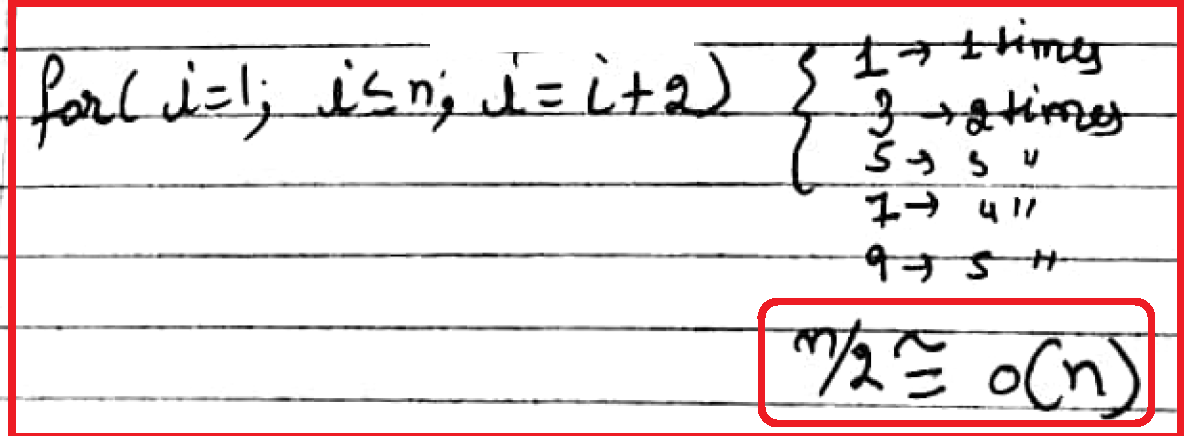 for( i=1; i≤n; i=i+2) { 1 → 1 times
3 → 2 times
5 → 3 "
7 → 4 "
9 → 5 "
n/2 ≅ o(n)